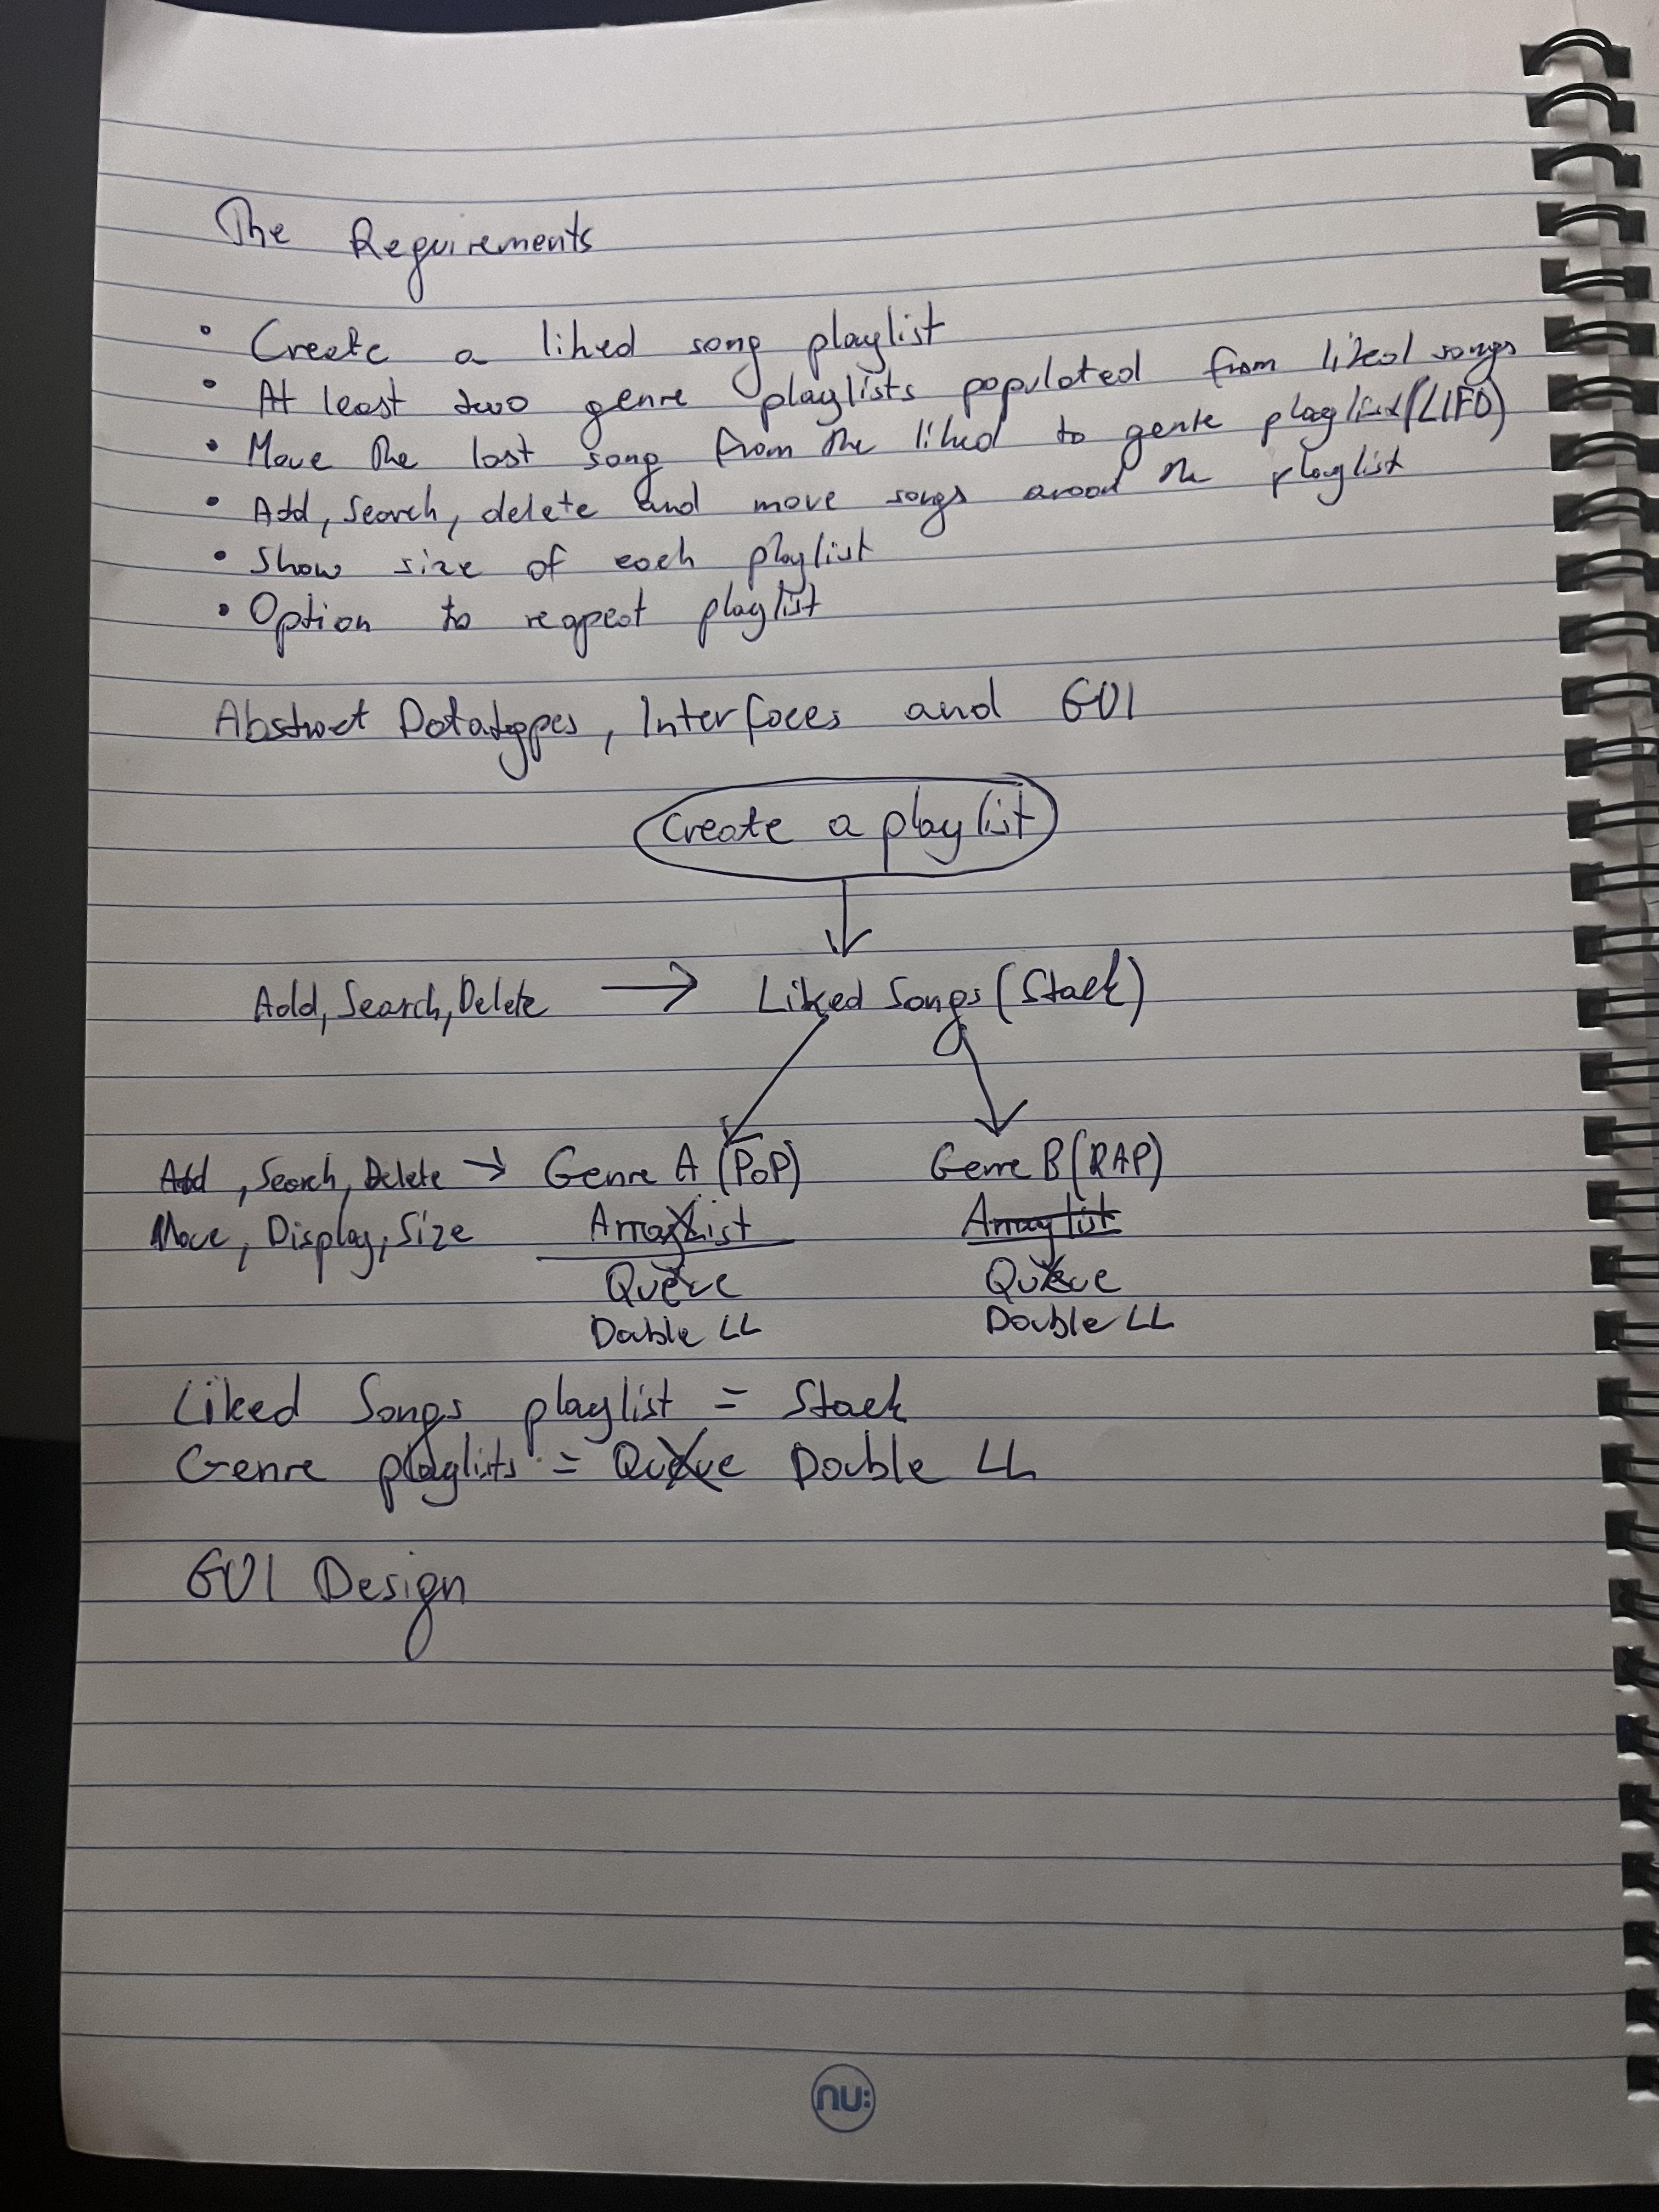 The Requirements
• Create a liked song playlist
• At least two genre playlists populated from liked songs
• Move the last song from the liked to genre playlist (LIFO)
• Add, Search, delete and move songs around the playlist
• Show size of each playlist
• Option to reqpeat playlist
Abstract Datatypes, Interfaces and GUI
Create a playlist
Add, Search, Delete → Liked Songs (Stack)
Add, Search, Delete → Genre A (POP) Genre B (RAP)
Move, Display, Size ArrayList Array list
Queue Queue
Double LL Double LL
Liked Songs playlist = Stack
Genre playlists = Queue Double LL
GUI Design
nu: